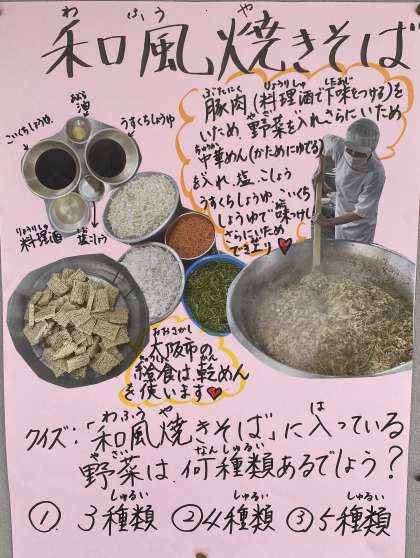 和風焼きそば
わ ふう や
油
あぶら
こいくちしょうゆ
うすくちしょうゆ
料理酒
りょうりしゅ
塩こしょう
しお
豚肉(料理酒で下味をつける)を
ぶたにく りょうりしゅ したあじ
いため、野菜を入れさらにいため
やさい
中華めん(かためにゆでる)
ちゅうか
を入れ、塩、こしょう
うすくちしょうゆ、こいくち
しょうゆで味つけし
さらにいため
でき上り
大阪市の
おおさかし
給食は、乾めん
きゅうしょく かん
を使います
クイズ:「和風焼きそば」に入っている
わ ふう や はい
野菜は、何種類あるでしょう?
やさい なんしゅるい
① 3種類 ② 4種類 ③ 5種類
しゅるい しゅるい しゅるい